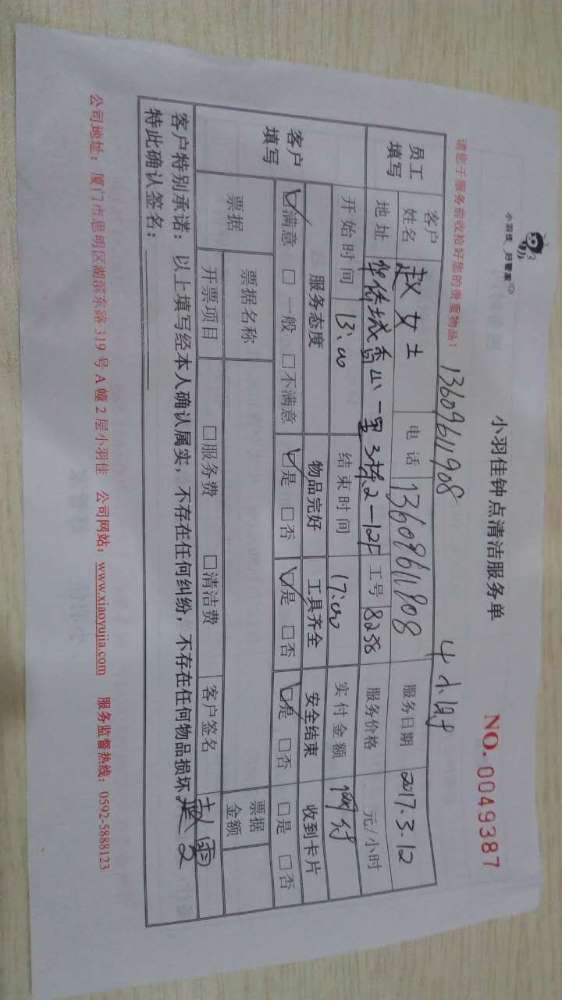 小羽佳钟点清洁服务单
小羽佳 好管家
NO. 0049387
请您于服务前收捡好您的贵重物品！
13609611908
4小时
员工填写
客户姓名 赵女士 电话 13609611908 服务日期 2017.3.12
地址 华侨城香山一里3栋2-12F 工号 8258 服务价格 元/小时
开始时间 13:00 结束时间 17:00 实付金额
客户填写
服务态度 物品完好 工具齐全 安全结束 收到卡片
☑满意 □一般 □不满意 ☑是 □否 ☑是 □否 ☑是 □否 □是 □否
票据 票据名称 票据金额
开票项目 □服务费 □清洁费 客户签名
客户特别承诺：以上填写经本人确认属实，不存在任何纠纷，不存在任何物品损坏，
特此确认签名：
公司地址：厦门市思明区湖滨东路319号A幢2层小羽佳 公司网站：www.xiaoyujia.com 服务监督热线：0592-5888123